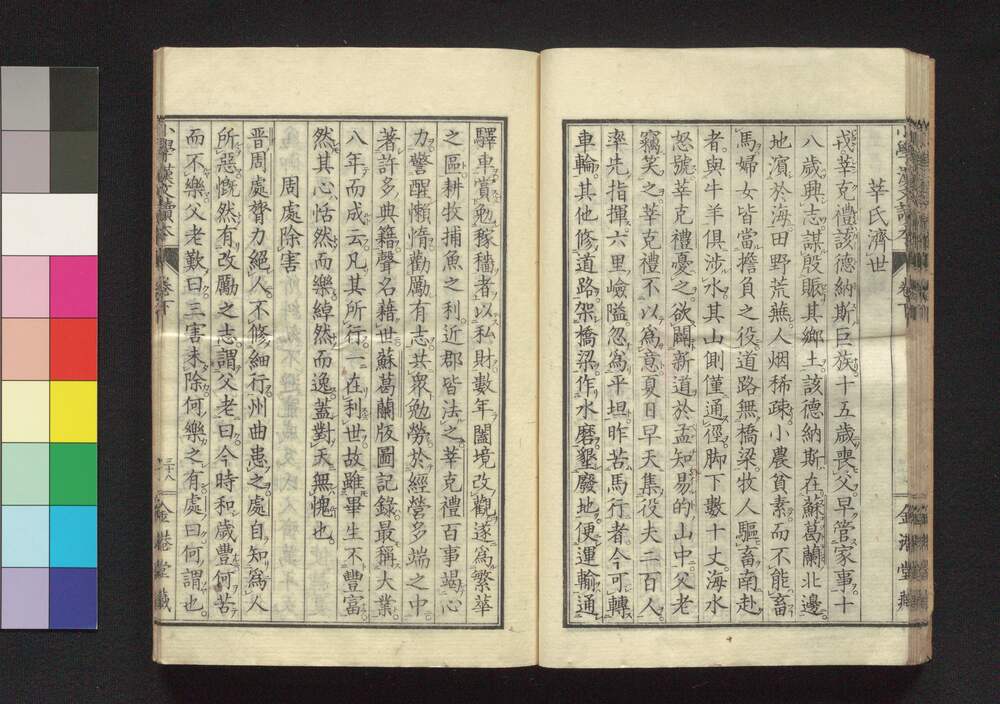 莘氏濟世
戎莘克禮該德納斯巨族十五歲喪父早管家事十
八歲興志謀殷賑其鄉土該德納斯在蘇葛蘭北邊
地濱於海田野荒蕪人烟稀疎小農貧素而不能畜
馬婦女皆當擔負之役道路無橋梁牧人驅畜南赴
者與牛羊俱涉水其山側僅通徑脚下數十丈海水
怒號莘克禮憂之欲闢新道於孟知易的山中父老
竊笑之莘克禮不以爲意夏日早天集役夫二百人
率先指揮六里嶮隘忽爲平坦昨苦馬行者今可轉
車輪其他修道路架橋梁作水磨墾廢地便運輸通
驛車賞勉稼穡者以私財數年闔境改觀遂爲繁華
之區耕牧捕魚之利近郡皆法之莘克禮百事竭心
力警醒懶惰勸厲有志共衆勉勞於經營多端之中
著許多典籍聲名藉世蘇葛蘭版圖記錄最稱大業
八年而成云凡其所行一在利世故雖畢生不豐富
然其心恬然而樂綽然而逸蓋對天無愧也
周處除害
晋周處膂力絕人不修細行州曲患之處自知爲人
所惡慨然有改厲之志謂父老曰今時和歲豐何苦
而不樂父老歎曰三害未除何樂之有處曰何謂也
小學漢文讀本
卷下
三十八
金港堂藏